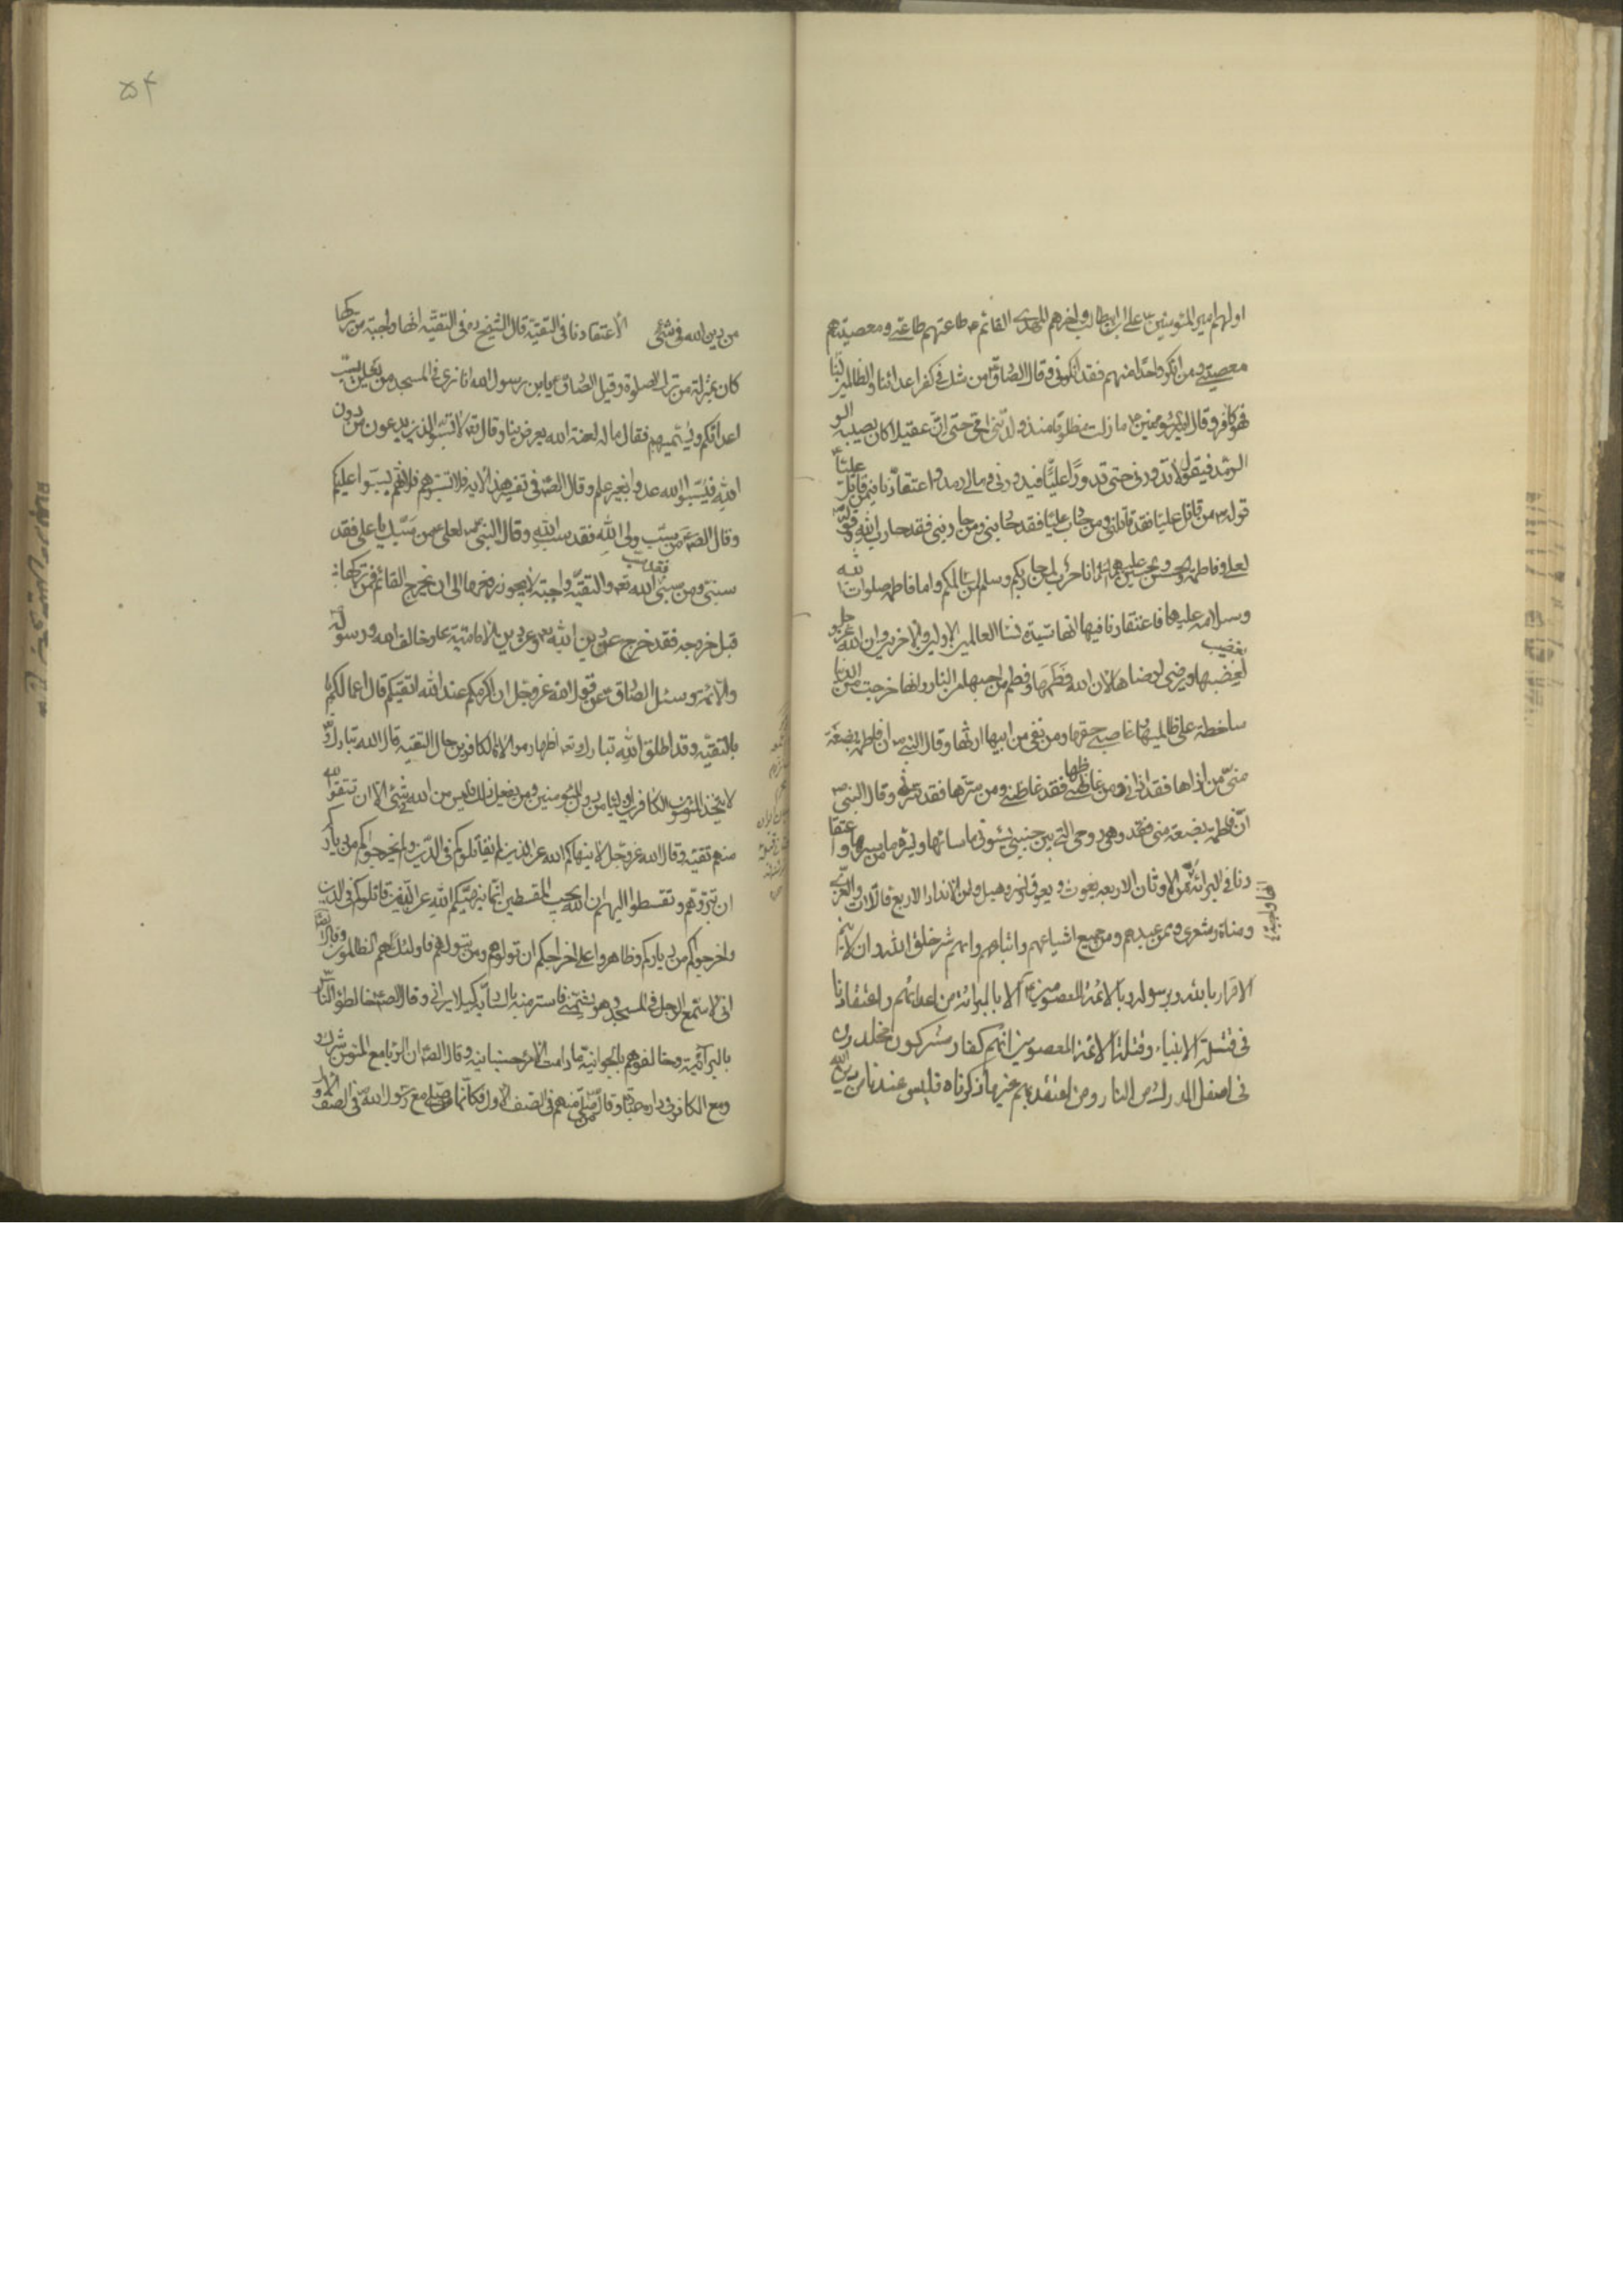 اولهم امير المؤمنين علی ابن ابيطالب واخرهم المهدی القائم طاعتهم طاعتی ومعصيتهم
معصيتی ومن انكر واحدا منهم فقد انكرنی وقال الصادق من شك فی كفر اعدائنا والظالمين لنا
فهو كافر وقال امير المؤمنين ما زلت مظلوما منذ ولدتنی امی حتی ان عقيلا كان يصيبه الر
الرمد فيقول لا تذرونی حتی تذروا عليا فيذرونی ومالی رمد واعتقادنا فيمن قاتل عليا
قوله من قاتل عليا فقد قاتلنی ومن حارب عليا فقد حاربنی ومن حاربنی فقد حارب الله وقوله
لعلی وفاطمة والحسن والحسين عليهم السلام انا حرب لمن حاربكم وسلم لمن سالمكم واما فاطمه صلوات الله
وسلامه عليها فاعتقادنا فيها انها سيدة نساء العالمين من الاولين والاخرين وان الله عز وجل يغضب
لغضبها ويرضی لرضاها لان الله فطمها وفطم من احبها من النار وانها خرجت من الدنيا
ساخطة علی ظالميها وغاصبی حقها ومن نفی من ابيها ارثها وقال النبی ان فاطمه بضعة
منی من اذاها فقد اذانی ومن غاظها فقد غاظنی ومن سرها فقد سرنی وقال النبی
ان فاطمة بضعة منی وهی روحی التی بين جنبی يسوئنی ما ساءها ويسرنی ما يسرها واعتقا
دنا فی البرائة من الاوثان الاربعه يغوث ويعوق ونسر وهبل ومن الانداد الاربع اللات والعزی
ومناة وشعری وممن عبدهم ومن جميع اشياعهم واتباعهم وانهم شر خلق الله وان لا يتم
الاقرار بالله وبرسوله وبالائمة المعصومين الا بالبرائة من اعدائهم واعتقادنا
فی قتلة الانبياء وقتلة الائمة المعصومين انهم كفار ومشركون مخلدون
فی اسفل الدرك من النار ومن اعتقد بهم غير ما ذكرناه فليس عندنا من دين الله
۵۴
من دين الله فی شئ الاعتقادنا فی التقية قال الشيخ ره فی التقية انها واجبة من تركها
كان بمنزلة من ترك الصلوة وقيل للصادق يابن رسول الله انا نری فی المسجد من يعلن بسب
اعدائكم ويسميهم فقال ما له لعنة الله يعرض بنا وقال تع لا تسبوا الذين يدعون من دون
الله فيسبوا الله عدوا بغير علم وقال الصادق فی تفسير هذه الاية فلا تسبوهم فانهم يسبوا عليكم
وقال من سب ولی الله فقد سب الله وقال النبی لعلی من سبك يا علی فقد
سبنی ومن سبنی فقد سب الله تع والتقية واجبة لا يجوز رفعها الی ان يخرج القائم فمن تركها
قبل خروجه فقد خرج عن دين الله وعن دين الامامية وخالف الله ورسوله
والائمة وسئل الصادق عن قول الله عز وجل ان اكرمكم عند الله اتقيكم قال اعمالكم
بالتقية وقد اطلق الله تبارك وتع اظهار موالاة الكافرين حال التقية قال الله تبارك
لا يتخذ المؤمنون الكافرين اولياء من دون المؤمنين ومن يفعل ذلك فليس من الله فی شئ الا ان تتقوا
منهم تقية وقال الله عز وجل لا ينهاكم الله عن الذين لم يقاتلوكم فی الدين ولم يخرجوكم من دياركم
ان تبروهم وتقسطوا اليهم ان الله يحب المقسطين انما ينهيكم الله عن الذين قاتلوكم فی الدين
واخرجوكم من دياركم وظاهروا علی اخراجكم ان تولوهم ومن يتولهم فاولئك هم الظالمون وقال
انی لاسمع الرجل فی المسجد وهو يشتمنی فاستتر منه بالسارية كيلا يرانی وقال خالطوا الناس
بالبرانية وخالفوهم بالجوانية ما دامت الامرة صبيانية وقال ان الريا مع المؤمن شرك و
ومع الكافر فی داره عبادة وقال من صلی معهم فی الصف الاول فكانما صلی مع رسول الله فی الصف الاول